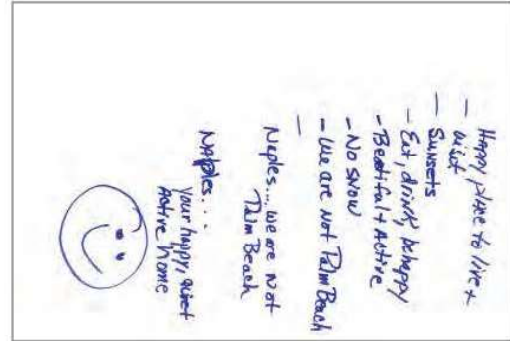 Happy place to live +
- visit
- Sunsets
- Eat, drink, be happy
- Beatiful + Active
- No snow
- We are not Palm Beach
-
Naples... we are not
Palm Beach
Naples...
your happy, quiet
Active home